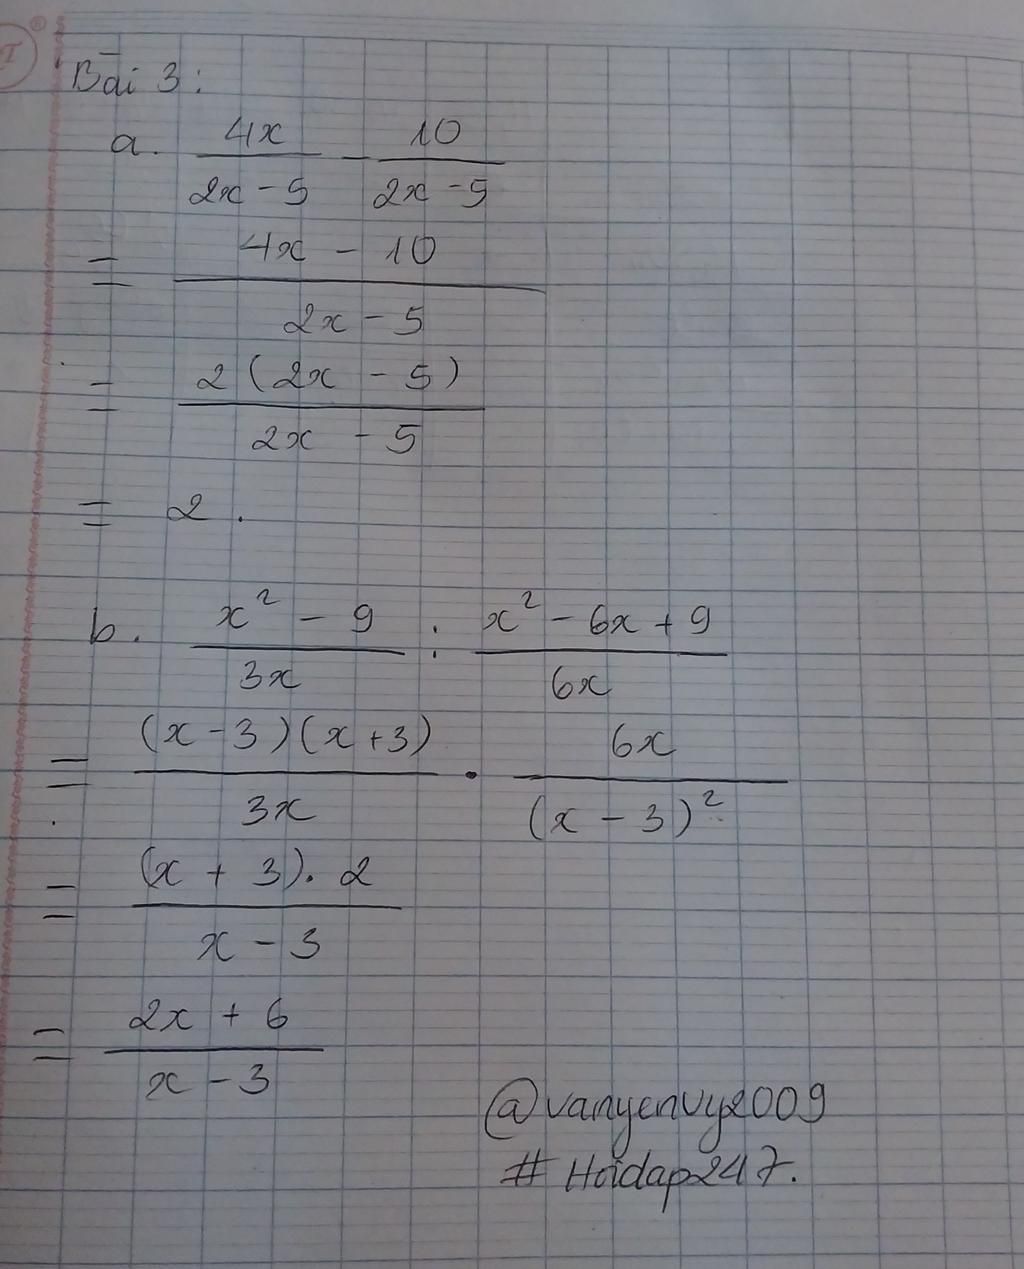 Bài 3:
a. 4x/(2x - 5) - 10/(2x - 5)
= (4x - 10)/(2x - 5)
= 2(2x - 5)/(2x - 5)
= 2.
b. (x² - 9)/(3x) : (x² - 6x + 9)/(6x)
= (x - 3)(x + 3)/(3x) • 6x/(x - 3)²
= (x + 3). 2/(x - 3)
= (2x + 6)/(x - 3)
@vanyenvy2009
# Hoidap247.